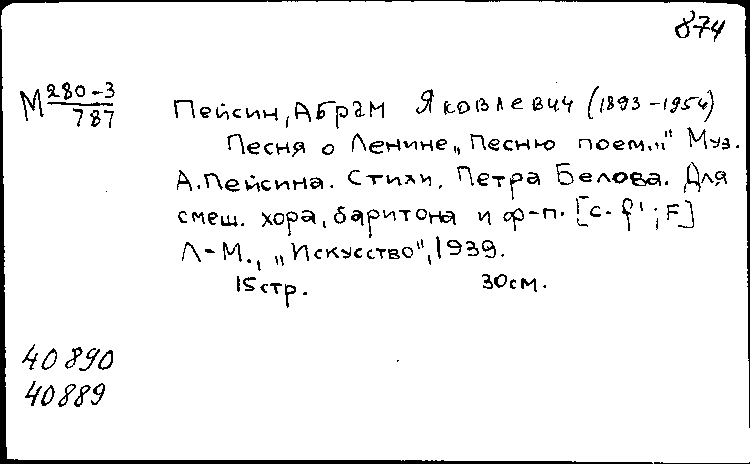 874
М 280-3/787
Пейсин, Абрам Яковлевич (1893-1954)
Песня о Ленине „Песню поем..." Муз.
А.Пейсина. Стихи, Петра Белова. Для
смеш. хора, баритона и ф-п. [c-f¹; F]
Л-М., „Искусство", 1939.
15стр. 30см.
40890
40889